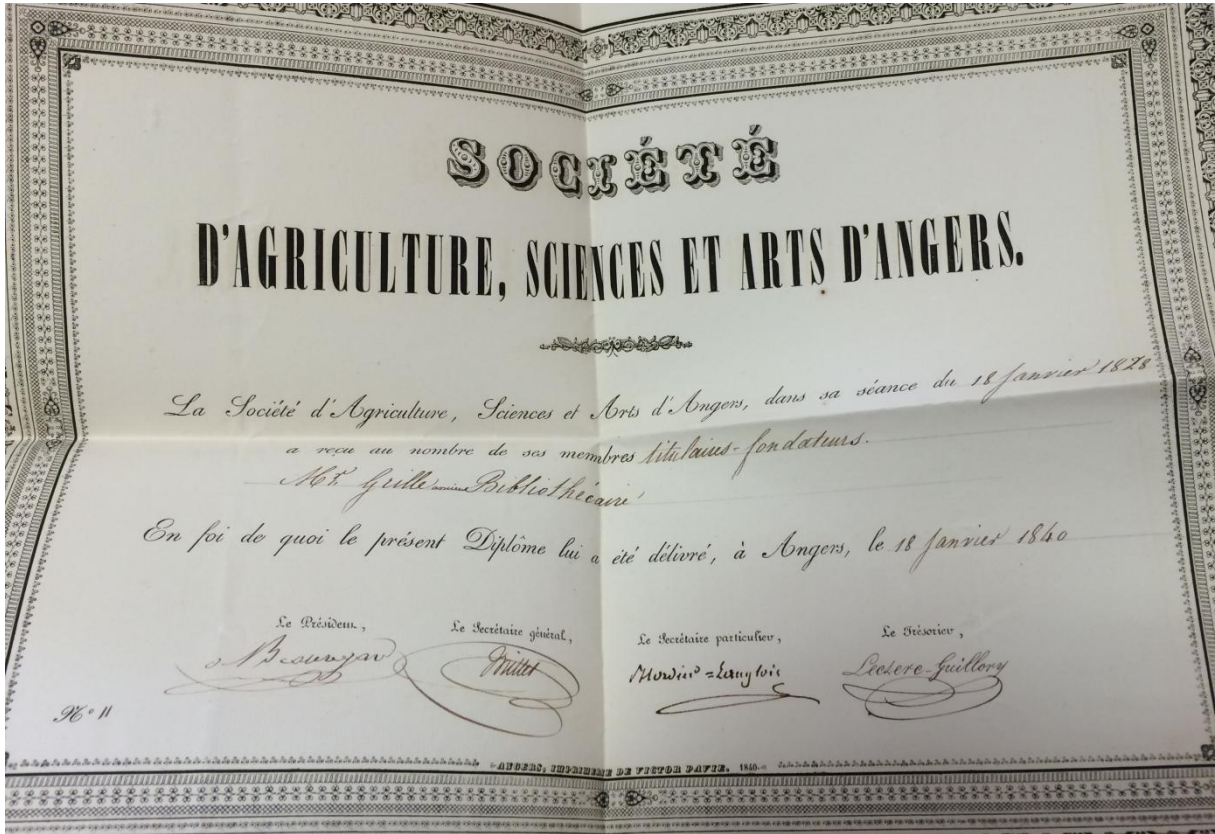 SOCIÉTÉ
D'AGRICULTURE, SCIENCES ET ARTS D'ANGERS.
La Société d'Agriculture, Sciences et Arts d'Angers, dans sa séance du 18 Janvier 1828
a reçu au nombre de ses membres titulaires-fondateurs.
Mr. Grille ancien Bibliothécaire
En foi de quoi le présent Diplôme lui a été délivré, à Angers, le 18 Janvier 1840
Le Président, Le Secrétaire général, Le Secrétaire particulier, Le Trésorier,
Millet Leclerc-Guillory
No 11
ANGERS, IMPRIMERIE DE VICTOR PAVIE. 1840.